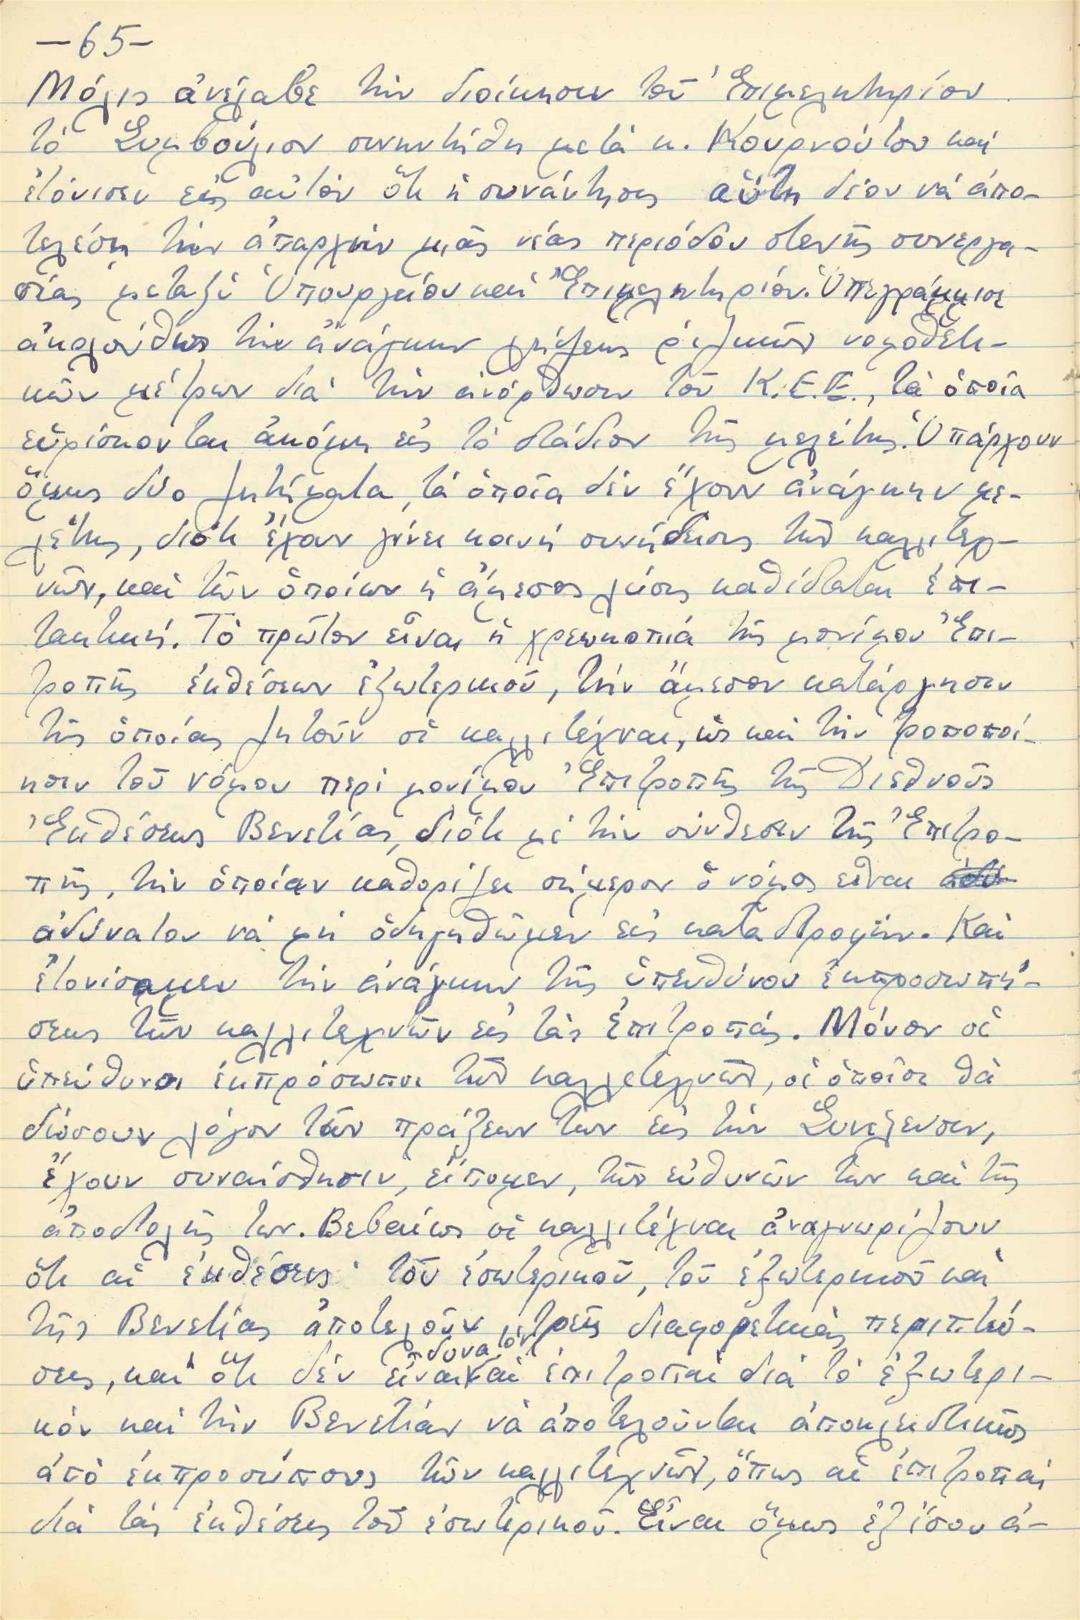 -65-
Μόλις ἀνέλαβε τὴν διοίκησιν τοῦ Ἐπιμελητηρίου
τὸ Συμβούλιον συνηντήθη μετὰ κ. Κουρνούτου καὶ
ἐτόνισεν εἰς αὐτὸν ὅτι ἡ συνάντησις αὕτη δέον νὰ ἀπο-
τελέση τὴν ἀπαρχὴν μιᾶς νέας περιόδου στενῆς συνεργα-
σίας μεταξὺ Ὑπουργείου καὶ Ἐπιμελητηρίου. Ὑπεγράμμισε
ἀκολούθως τὴν ἀνάγκην λήψεως ριζικῶν νομοθετι-
κῶν μέτρων διὰ τὴν ἀνόρθωσιν τοῦ Κ.Ε.Ε., τὰ ὁποῖα
εὑρίσκονται ἀκόμη εἰς τὸ στάδιον τῆς μελέτης. Ὑπάρχουν
ὅμως δύο ζητήματα, τὰ ὁποῖα δὲν ἔχουν ἀνάγκην με-
λέτης, διότι ἔχουν γίνει κοινὴ συνείδησις τῶν καλλιτεχ-
νῶν, καὶ τῶν ὁποίων ἡ ἄμεσος λύσις καθίσταται ἐπι-
τακτική. Τὸ πρῶτον εἶναι ἡ χρεωκοπία τῆς μονίμου Ἐπι-
τροπῆς ἐκθέσεων ἐξωτερικοῦ, τὴν ἄμεσον κατάργησιν
τῆς ὁποίας ζητοῦν οἱ καλλιτέχναι, ὡς καὶ τὴν τροποποί-
ησιν τοῦ νόμου περὶ μονίμου Ἐπιτροπῆς τῆς Διεθνοῦς
Ἐκθέσεως Βενετίας, διότι μὲ τὴν σύνθεσιν τῆς Ἐπιτρο-
πῆς, τὴν ὁποίαν καθορίζει σήμερον ὁ νόμος εἶναι
ἀδύνατον νὰ μὴ ὁδηγηθῶμεν εἰς καταστροφήν. Καὶ
ἐτονίσαμεν τὴν ἀνάγκην τῆς ὑπευθύνου ἐκπροσωπή-
σεως τῶν καλλιτεχνῶν εἰς τὰς ἐπιτροπάς. Μόνον οἱ
ὑπεύθυνοι ἐκπρόσωποι τῶν καλλιτεχνῶν, οἱ ὁποῖοι θὰ
δώσουν λόγον τῶν πράξεών των εἰς τὴν Συνέλευσιν,
ἔχουν συναίσθησιν, εἴπομεν, τῶν εὐθυνῶν των καὶ τῆς
ἀποστολῆς των. Βεβαίως οἱ καλλιτέχναι ἀναγνωρίζουν
ὅτι αἱ ἐκθέσεις τοῦ ἐσωτερικοῦ, τοῦ ἐξωτερικοῦ καὶ
τῆς Βενετίας ἀποτελοῦν τρεῖς διαφορετικὰς περιπτώ-
σεις, καὶ ὅτι δὲν εἶναι δυνατὸν αἱ ἐπιτροπαὶ διὰ τὸ ἐξωτερι-
κὸν καὶ τὴν Βενετίαν νὰ ἀποτελοῦνται ἀποκλειστικῶς
ἀπὸ ἐκπροσώπους τῶν καλλιτεχνῶν, ὅπως αἱ ἐπιτροπαὶ
διὰ τὰς ἐκθέσεις τοῦ ἐσωτερικοῦ. Εἶναι ὅμως ἐξ ἴσου ἀ-